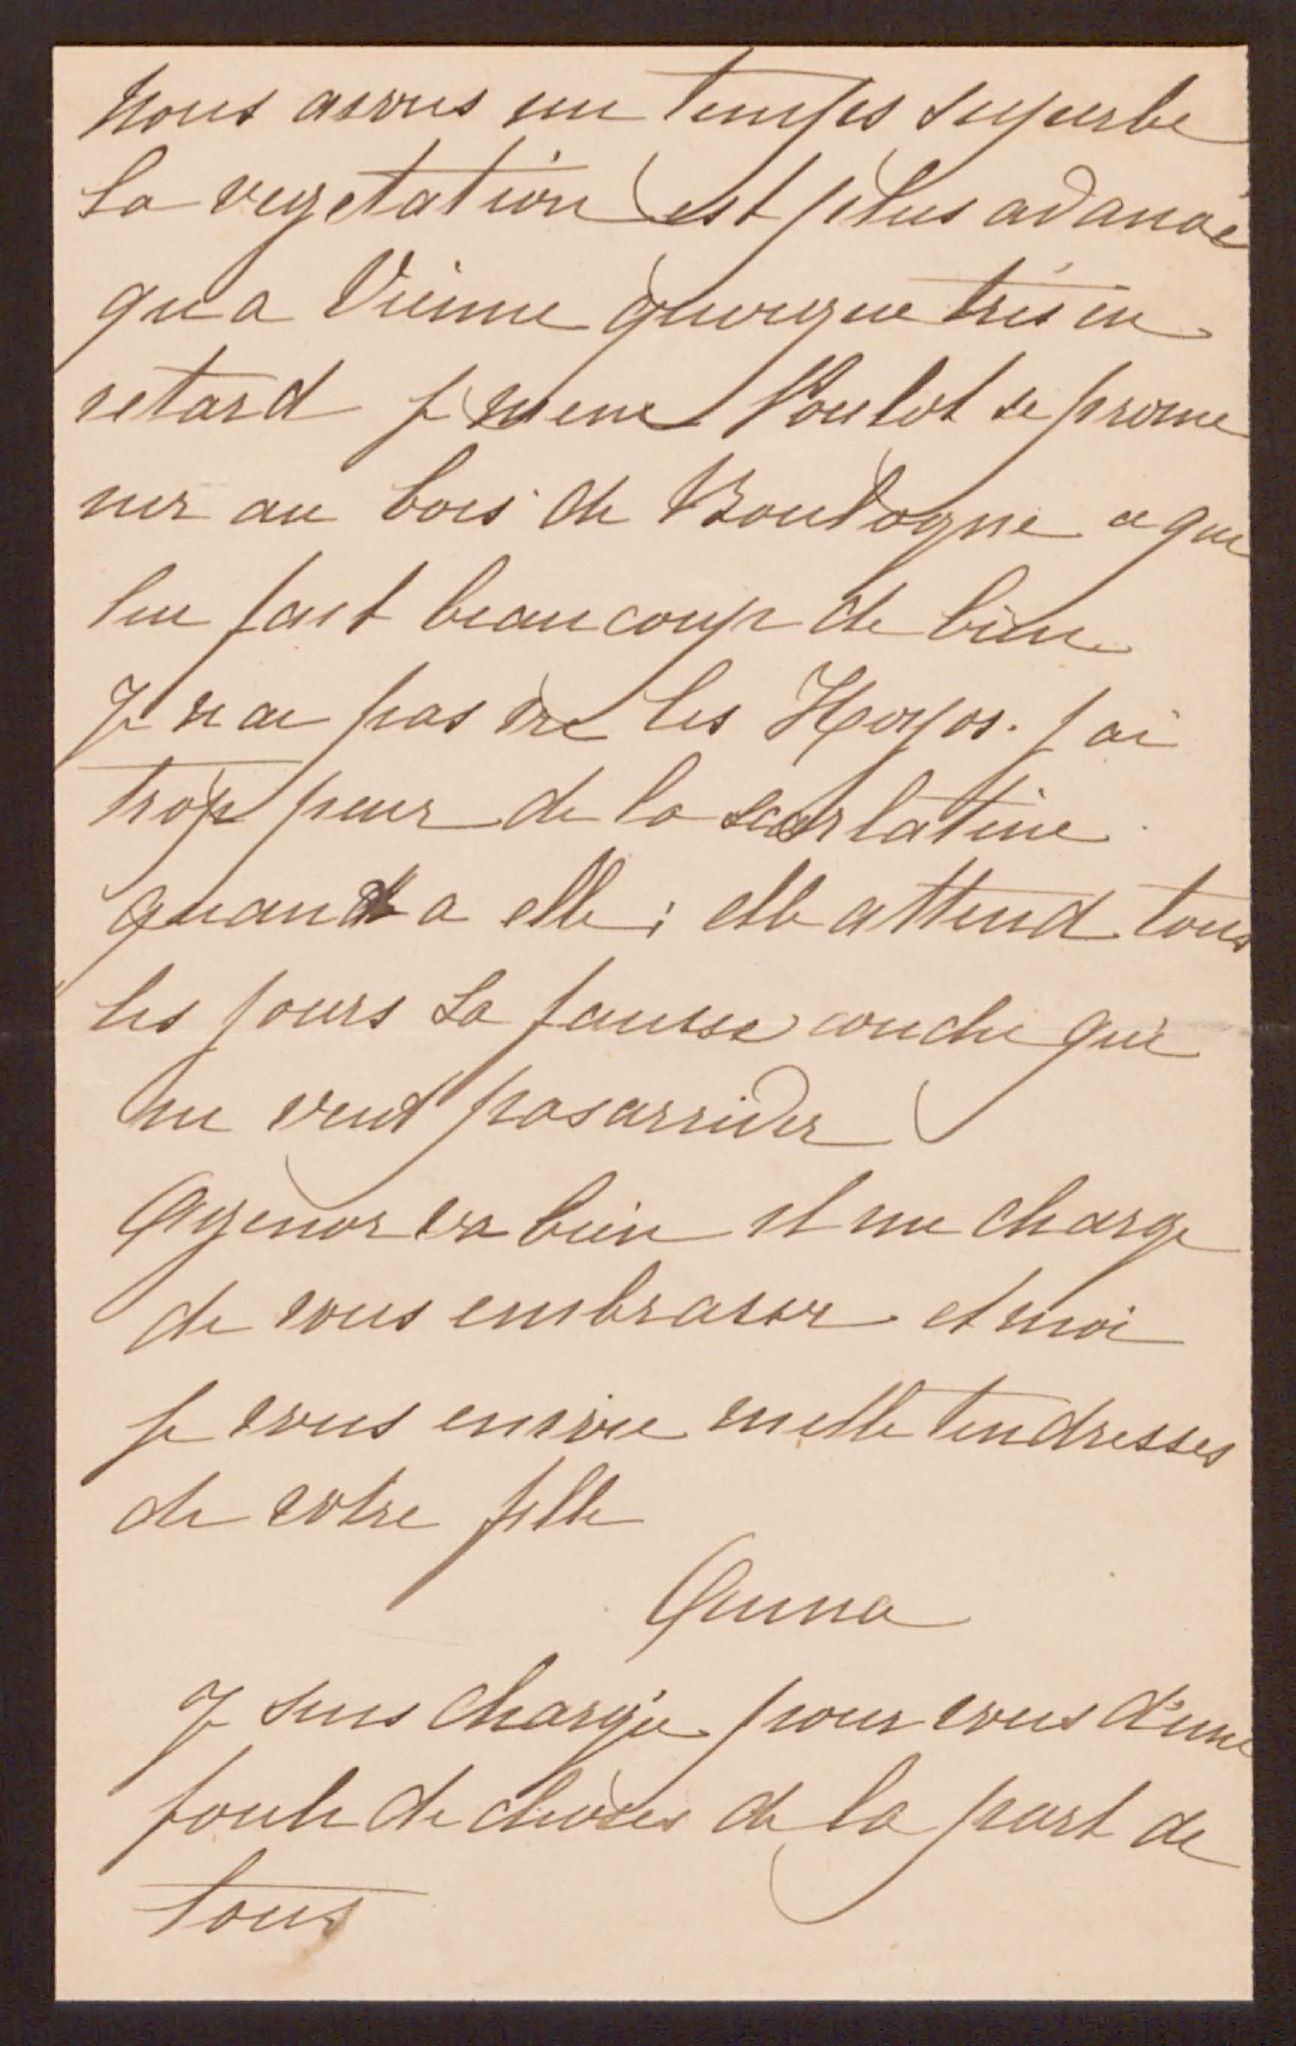 Nous avons un temps superbe
la vegetation est plus advancé
qu a Vienne quoique très en
retard je mene Poulot se prome
ner au bois de Boulogne ce qui
lui fait beaucoup de bien
Je n ai pas vu les Hoyos. j ai
trop peur de la scarlatine
quand a elle ; elle attend tous
les jours la fausse couche qui
ne veut pas arriver
Agenor va bien et me charge
de vous embrasser et moi
je vous envoie mille tendresses
de votre fille
Anna
Je suis chargée pour vous d'une
foule de choses de la part de
tous